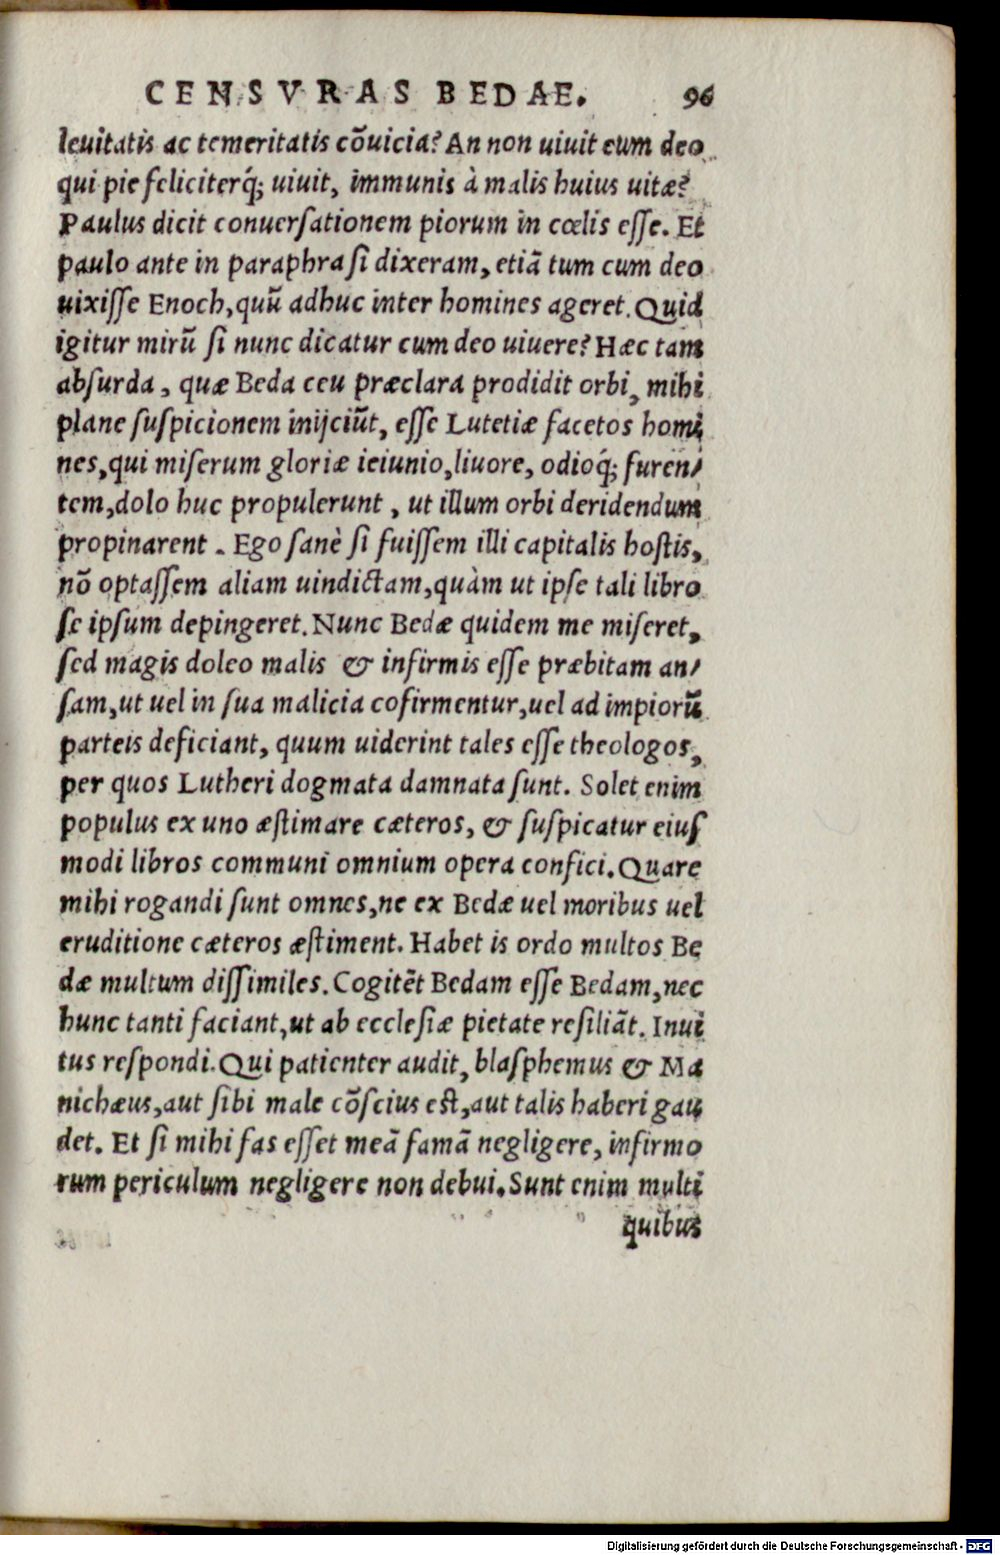 CENSVRAS BEDAE. 96
leuitatis ac temeritatis cōuicia? An non uiuit cum deo
qui pie feliciterq́; uiuit, immunis à malis huius uitæ?
Paulus dicit conuersationem piorum in cœlis esse. Et
paulo ante in paraphrasi dixeram, etiā tum cum deo
uixisse Enoch, quū adhuc inter homines ageret. Quid
igitur mirū si nunc dicatur cum deo uiuere? Hæc tam
absurda, quæ Beda ceu præclara prodidit orbi, mihi
plane suspicionem inijciūt, esse Lutetiæ facetos homi
nes, qui miserum gloriæ ieiunio, liuore, odioq́; furen/
tem, dolo huc propulerunt, ut illum orbi deridendum
propinarent. Ego sanè si fuissem illi capitalis hostis,
nō optassem aliam uindictam, quàm ut ipse tali libro
se ipsum depingeret. Nunc Bedæ quidem me miseret,
sed magis doleo malis & infirmis esse præbitam an/
sam, ut uel in sua malicia cofirmentur, uel ad impiorū
parteis deficiant, quum uiderint tales esse theologos,
per quos Lutheri dogmata damnata sunt. Solet enim
populus ex uno æstimare cæteros, & suspicatur eius
modi libros communi omnium opera confici. Quare
mihi rogandi sunt omnes, ne ex Bedæ uel moribus uel
eruditione cæteros æstiment. Habet is ordo multos Be
dæ multum dissimiles. Cogitēt Bedam esse Bedam, nec
hunc tanti faciant, ut ab ecclesiæ pietate resiliāt. Inui
tus respondi. Qui patienter audit, blasphemus & Ma
nichæus, aut sibi male cōscius est, aut talis haberi gau
det. Et si mihi fas esset meā famā negligere, infirmo
rum periculum negligere non debui. Sunt enim multi
quibus
Digitalisierung gefördert durch die Deutsche Forschungsgemeinschaft - DFG